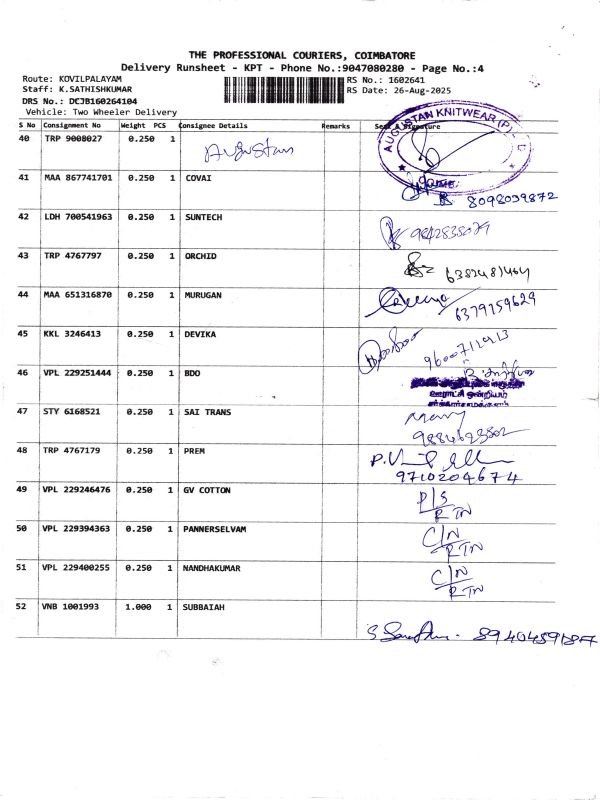 THE PROFESSIONAL COURIERS, COIMBATORE
Delivery Runsheet - KPT - Phone No.:9047080280 - Page No.:4
Route: KOVILPALAYAM
RS No.: 1602641
Staff: K.SATHISHKUMAR
RS Date: 26-Aug-2025
DRS No.: DCJB160264104
Vehicle: Two Wheeler Delivery
S No Consignment No Weight PCS Consignee Details Remarks Seal & Signature
40 TRP 9008027 0.250 1 Augustan AUGUSTAN KNITWEAR (P)
41 MAA 867741701 0.250 1 COVAI 8098039872
42 LDH 700541963 0.250 1 SUNTECH
43 TRP 4767797 0.250 1 ORCHID
44 MAA 651316870 0.250 1 MURUGAN 6379159629
45 KKL 3246413 0.250 1 DEVIKA
46 VPL 229251444 0.250 1 BDO
ஊராட்சி ஒன்றியம்
47 STY 6168521 0.250 1 SAI TRANS
48 TRP 4767179 0.250 1 PREM 9710204674
49 VPL 229246476 0.250 1 GV COTTON P/S RTN
50 VPL 229394363 0.250 1 PANNERSELVAM C/N RTN
51 VPL 229400255 0.250 1 NANDHAKUMAR C/N RTN
52 VNB 1001993 1.000 1 SUBBAIAH